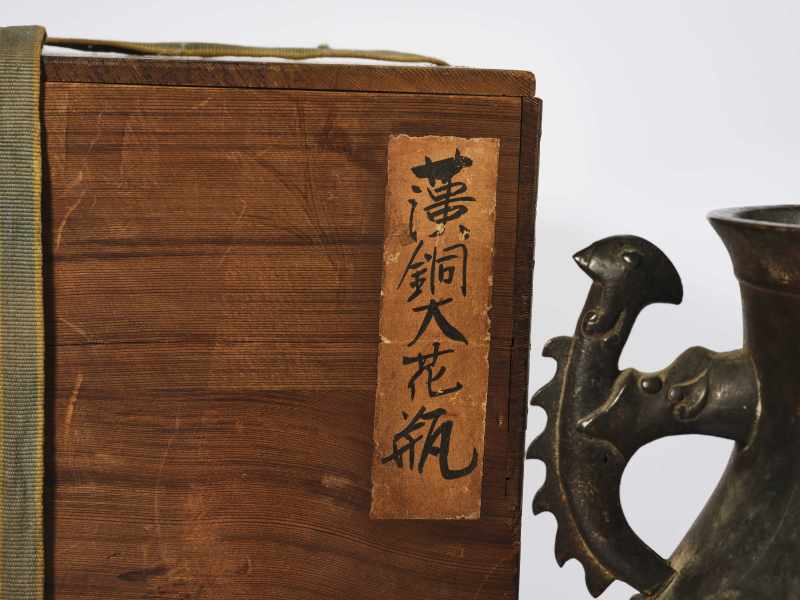 漢銅大花瓶